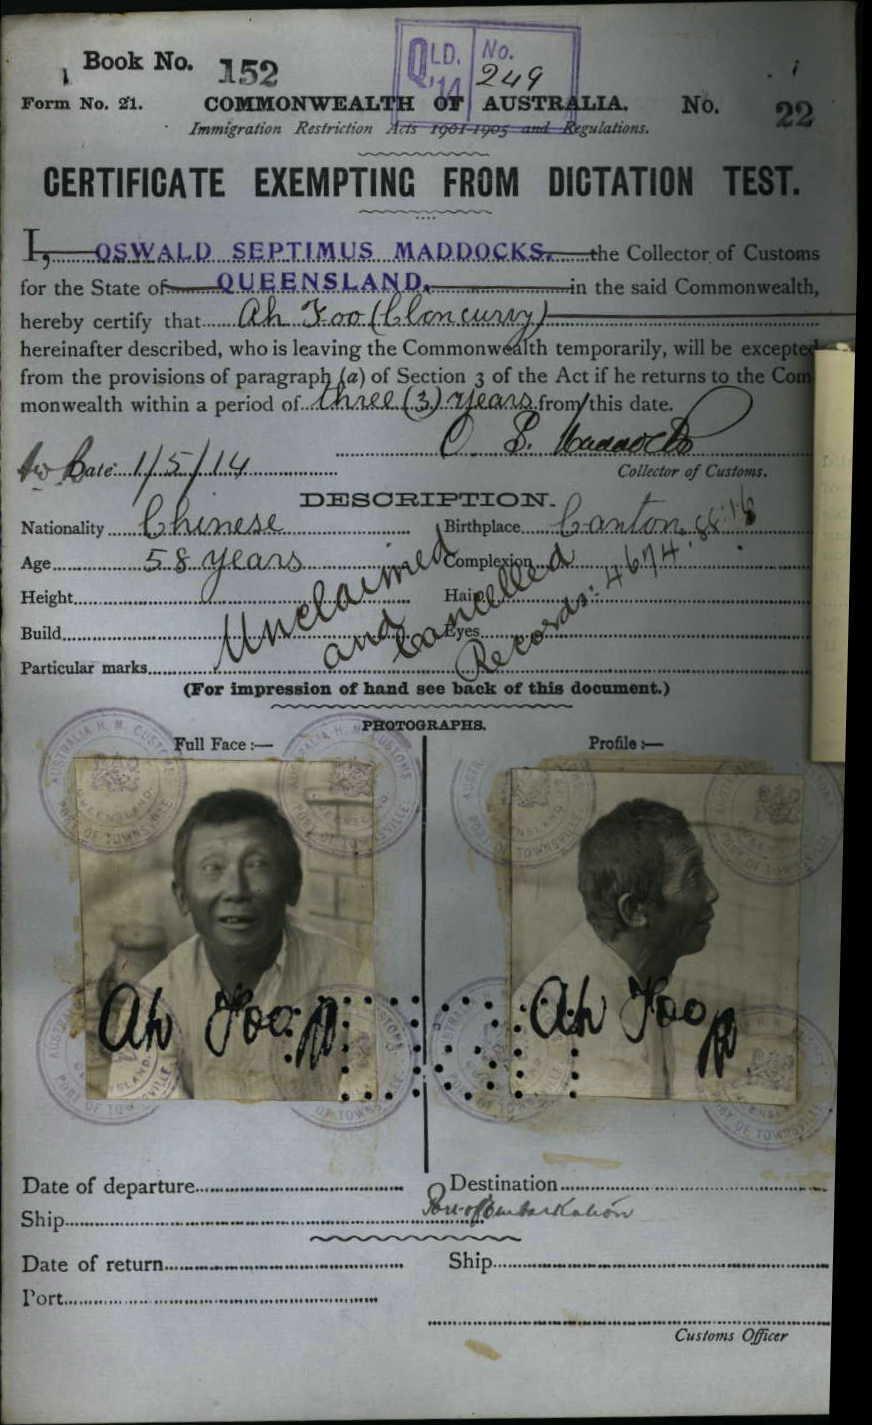 Book No. 152
QLD. '14 No. 249
Form No. 21. COMMONWEALTH OF AUSTRALIA. No. 22
Immigration Restriction Acts 1901-1905 and Regulations.
CERTIFICATE EXEMPTING FROM DICTATION TEST.
I, OSWALD SEPTIMUS MADDOCKS, the Collector of Customs
for the State of QUEENSLAND, in the said Commonwealth,
hereby certify that Ah Foo (Cloncurry)
hereinafter described, who is leaving the Commonwealth temporarily, will be excepted
from the provisions of paragraph (a) of Section 3 of the Act if he returns to the Com
monwealth within a period of three (3) years from this date.
O. S. Maddocks
Date 1/5/14 Collector of Customs.
DESCRIPTION.
Nationality Chinese Birthplace Canton
Age 58 years Complexion
Height Hair
Build Eyes
Particular marks
Unclaimed
and Cancelled
Records: 4674
(For impression of hand see back of this document.)
PHOTOGRAPHS.
Full Face :— Profile :—
AUSTRALIA H. M. CUSTOMS QUEENSLAND PORT OF TOWNSVILLE
Ah Foo Ah Foo
Date of departure Destination
Port of Embarkation
Ship
Date of return Ship
Port
Customs Officer